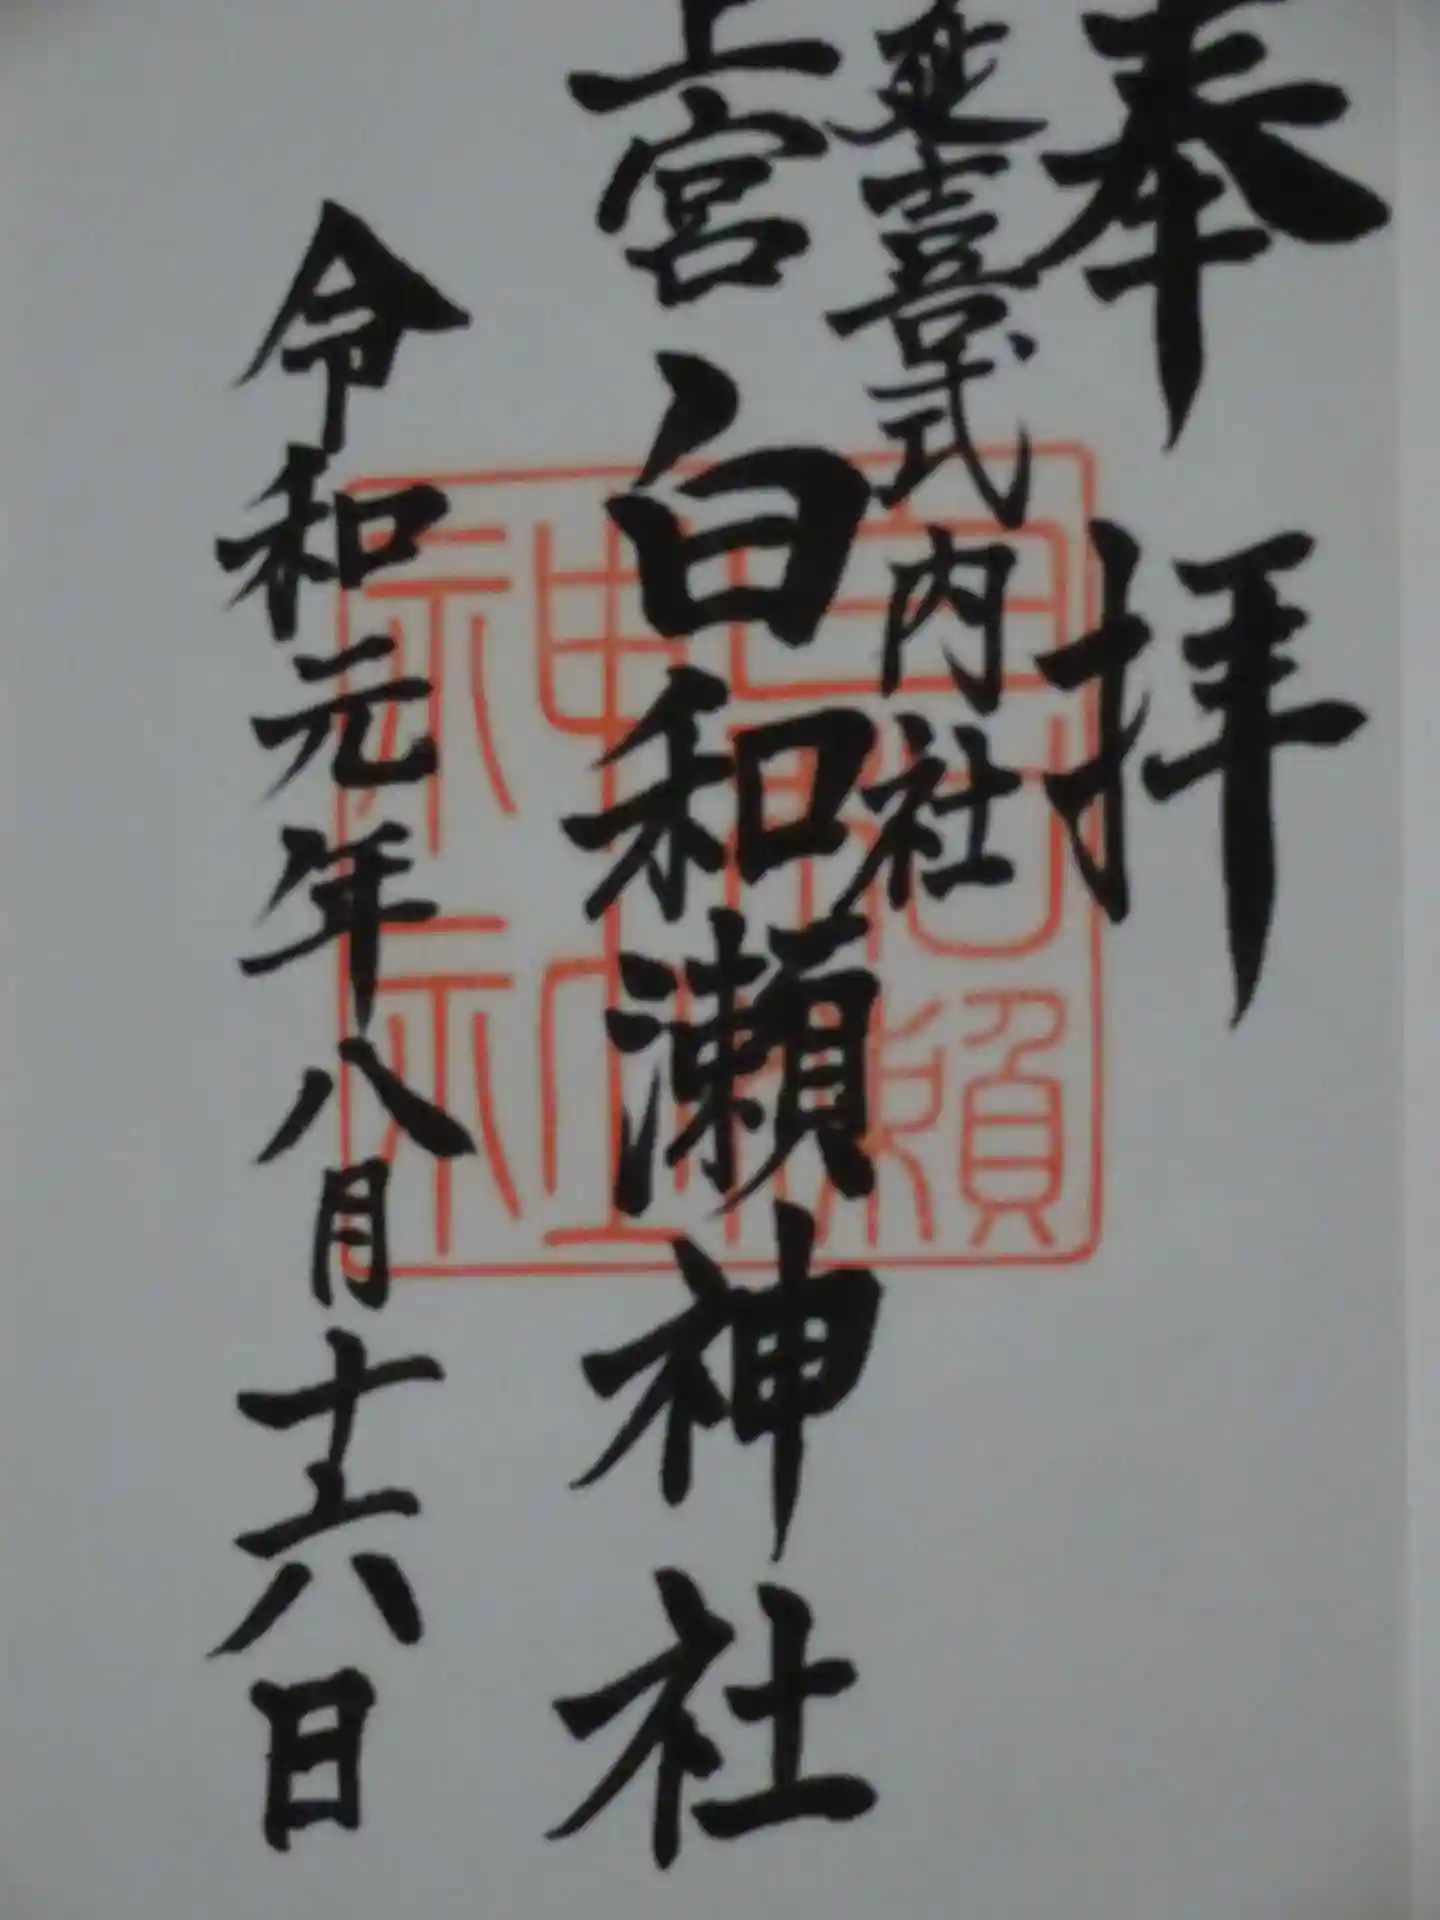 奉拝
延喜式内社
上宮 白和瀬神社
令和元年八月十六日
白和瀬
神社